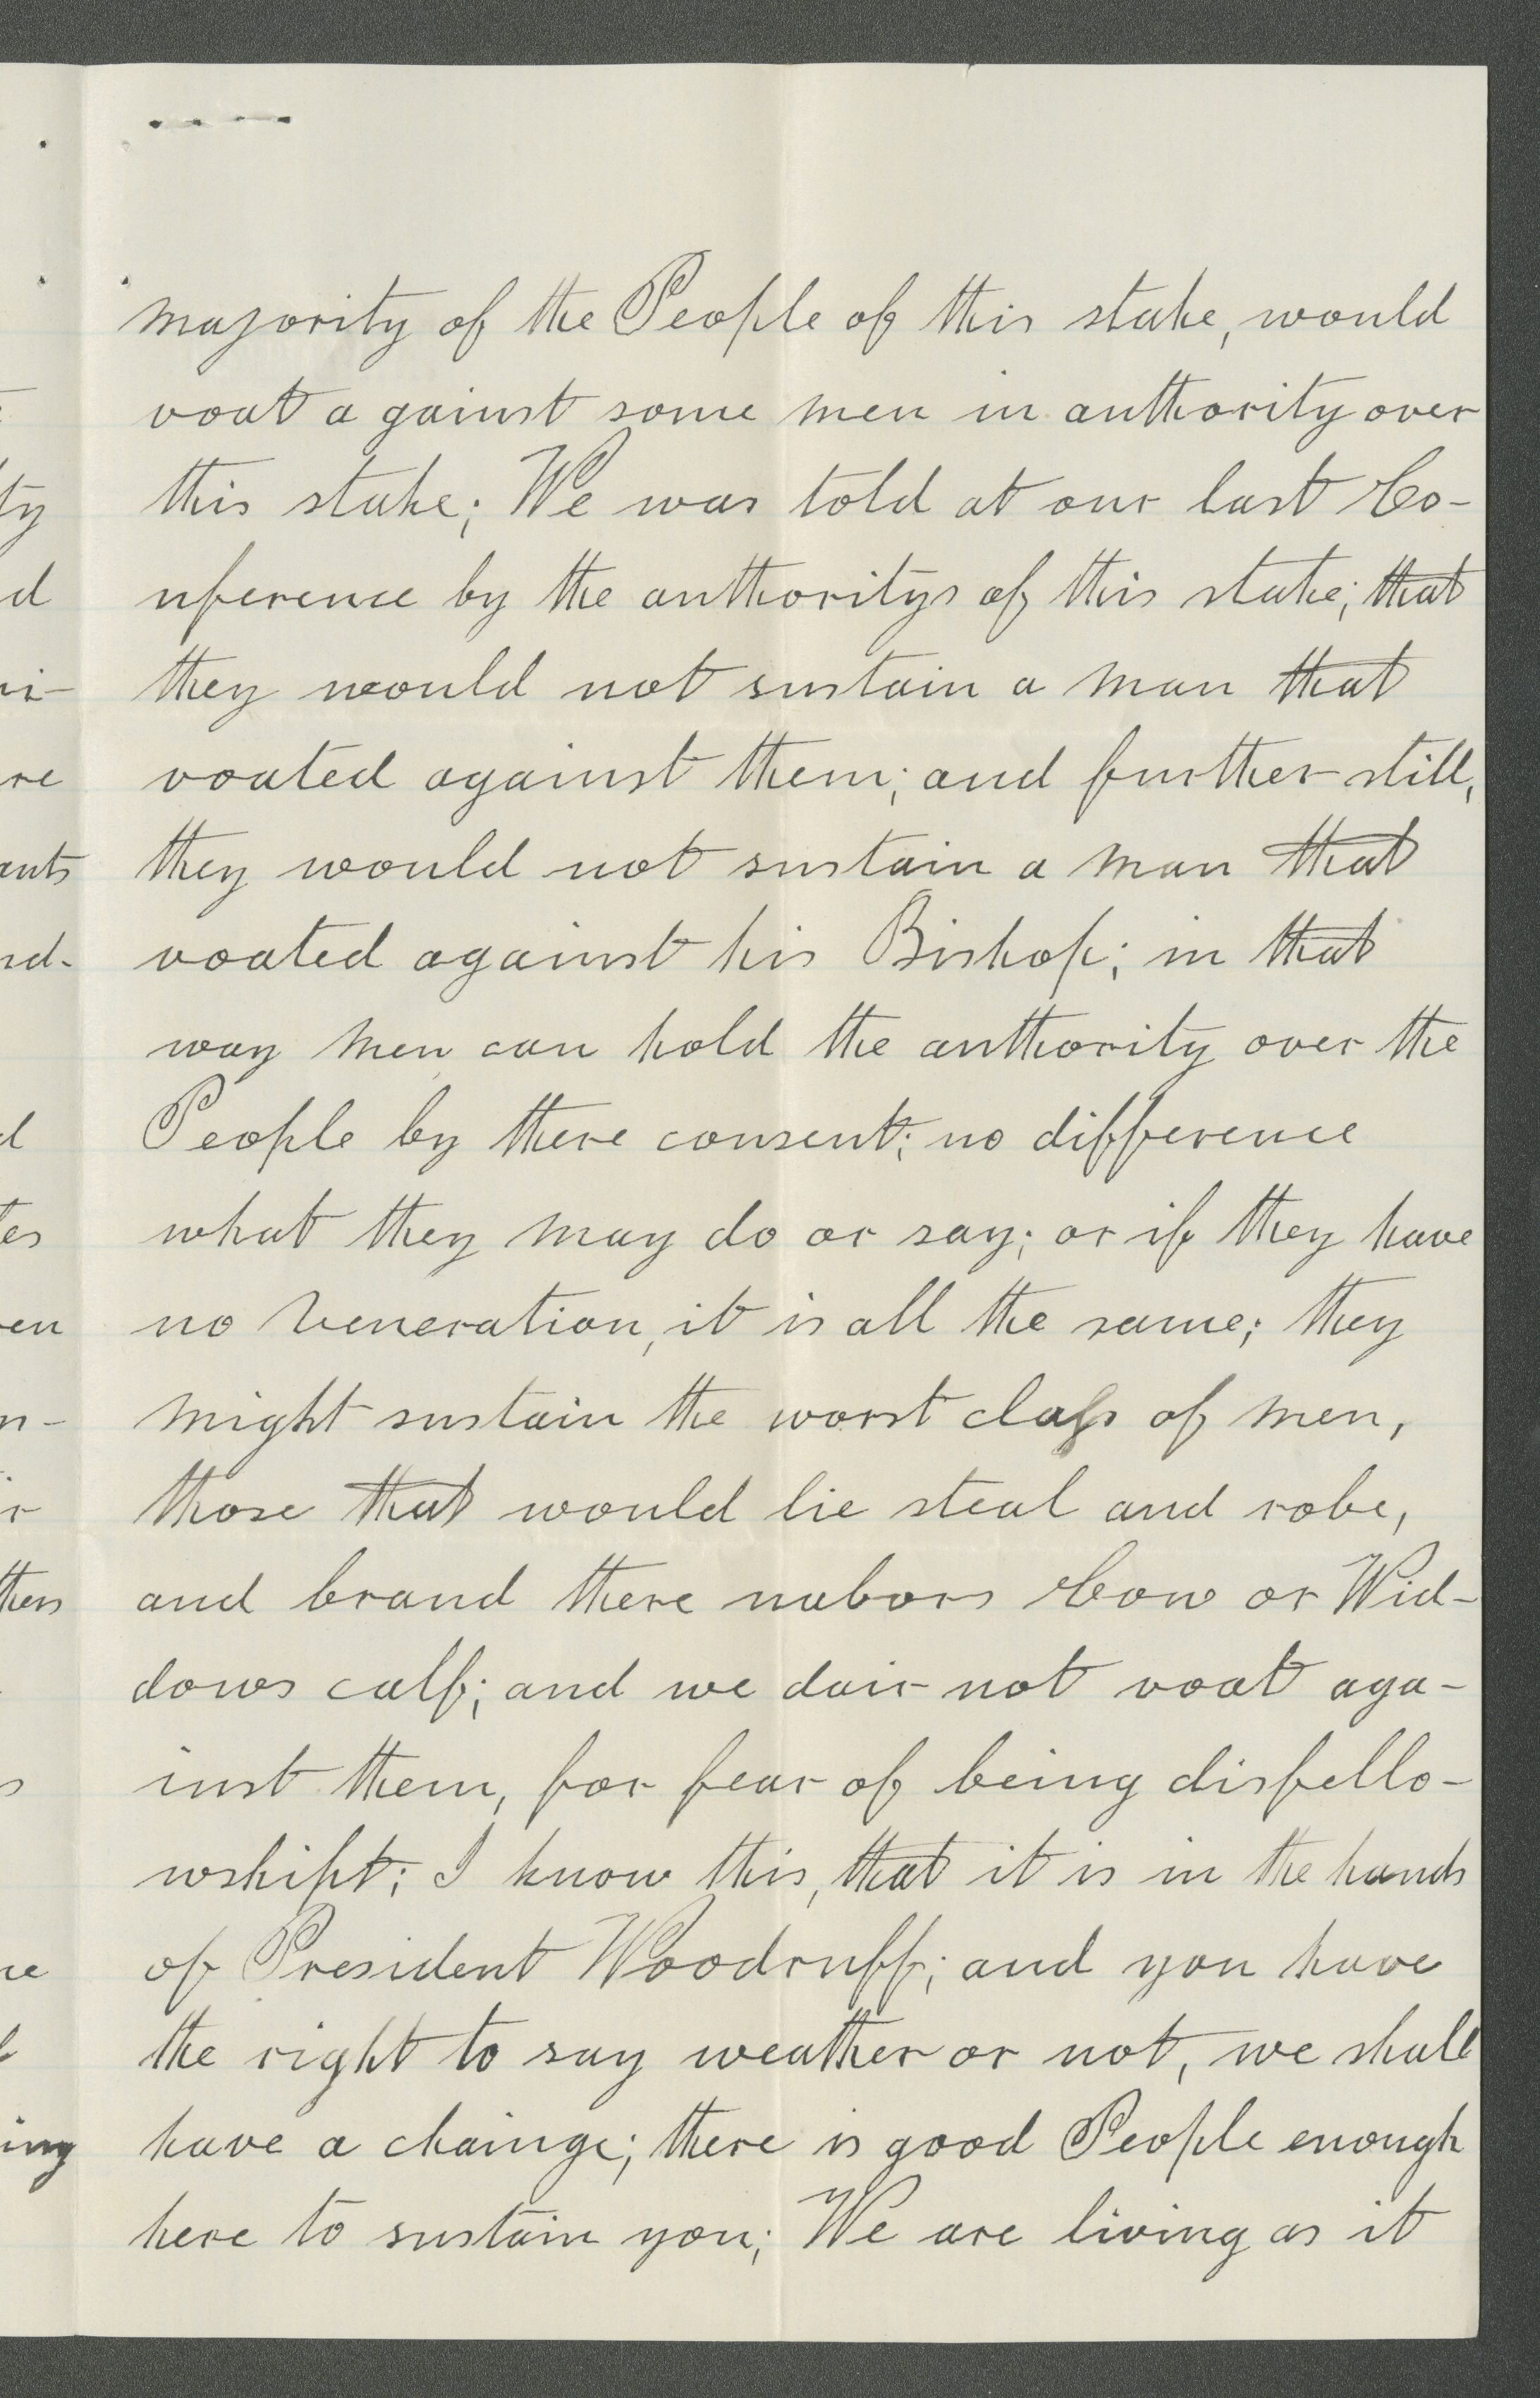 majority of the People of this stake, would
voat a gainst some men in authority over
this stake; We was told at our last Co-
nference by the authoritys of this stake; that
they would not sustain a man that
voated against them; and further still,
they would not sustain a man that
voated against his Bishop; in that
way men can hold the authority over the
People by there consent; no difference
what they may do or say; or if they have
no veneration, it is all the same; they
might sustain the worst class of men,
those that would lie steal and robe,
and brand there nabors Cow or Wid-
dows calf; and we dair not voat aga-
inst them, for fear of being disfello-
wshipt; I know this, that it is in the hands
of President Woodruff; and you have
the right to say weather or not, we shall
have a chainge; there is good People enough
here to sustain you; We are living as it